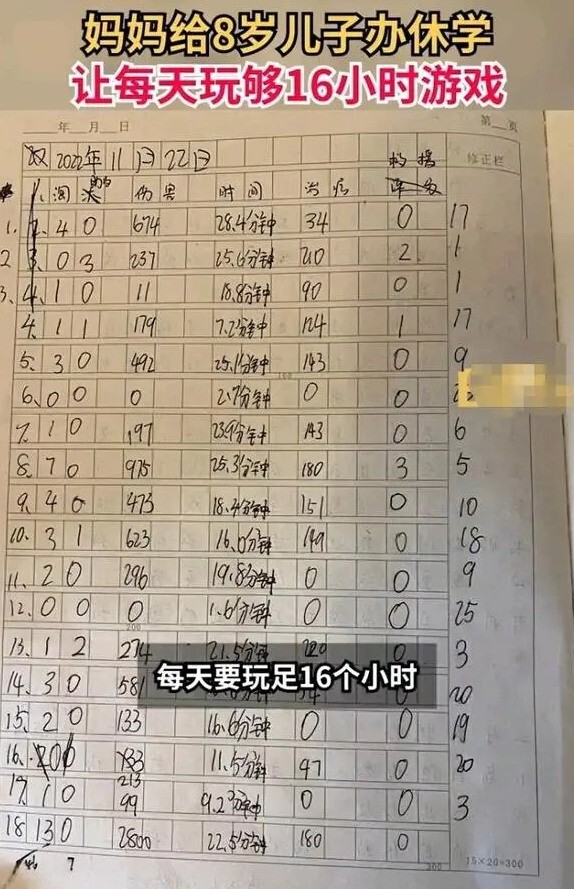 妈妈给8岁儿子办休学
让每天玩够16小时游戏
年 月 日 第 页
2022年11月22日 修正栏
淘汰 伤害 时间 治疗
1. 4 0 674 28.4分钟 34 0 17
2 0 3 237 25.6分钟 210 2 1
3. 1 0 11 18.8分钟 90 0 1
4. 1 1 179 7.2分钟 124 1 17
5. 3 0 492 25.1分钟 143 0 9
6. 0 0 0 2.7分钟 0 0
7. 1 0 197 23.9分钟 143 0 6
8. 7 0 975 25.3分钟 180 3 5
9. 4 0 473 18.4分钟 151 0 10
10. 3 1 623 16.0分钟 149 0 18
11. 2 0 296 19.8分钟 0 0 9
12. 0 0 0 1.6分钟 0 0 25
200
13. 1 2 274 21.5分钟 0 3
每天要玩足16个小时
14. 3 0 581 0 20
15. 2 0 133 16.6分钟 0 0 19
16. 11.5分钟 47 0 20
213
17. 1 0 99 9.2分钟 0 0 3
18 13 0 2800 22.5分钟 180 0
7 300 15×20=300